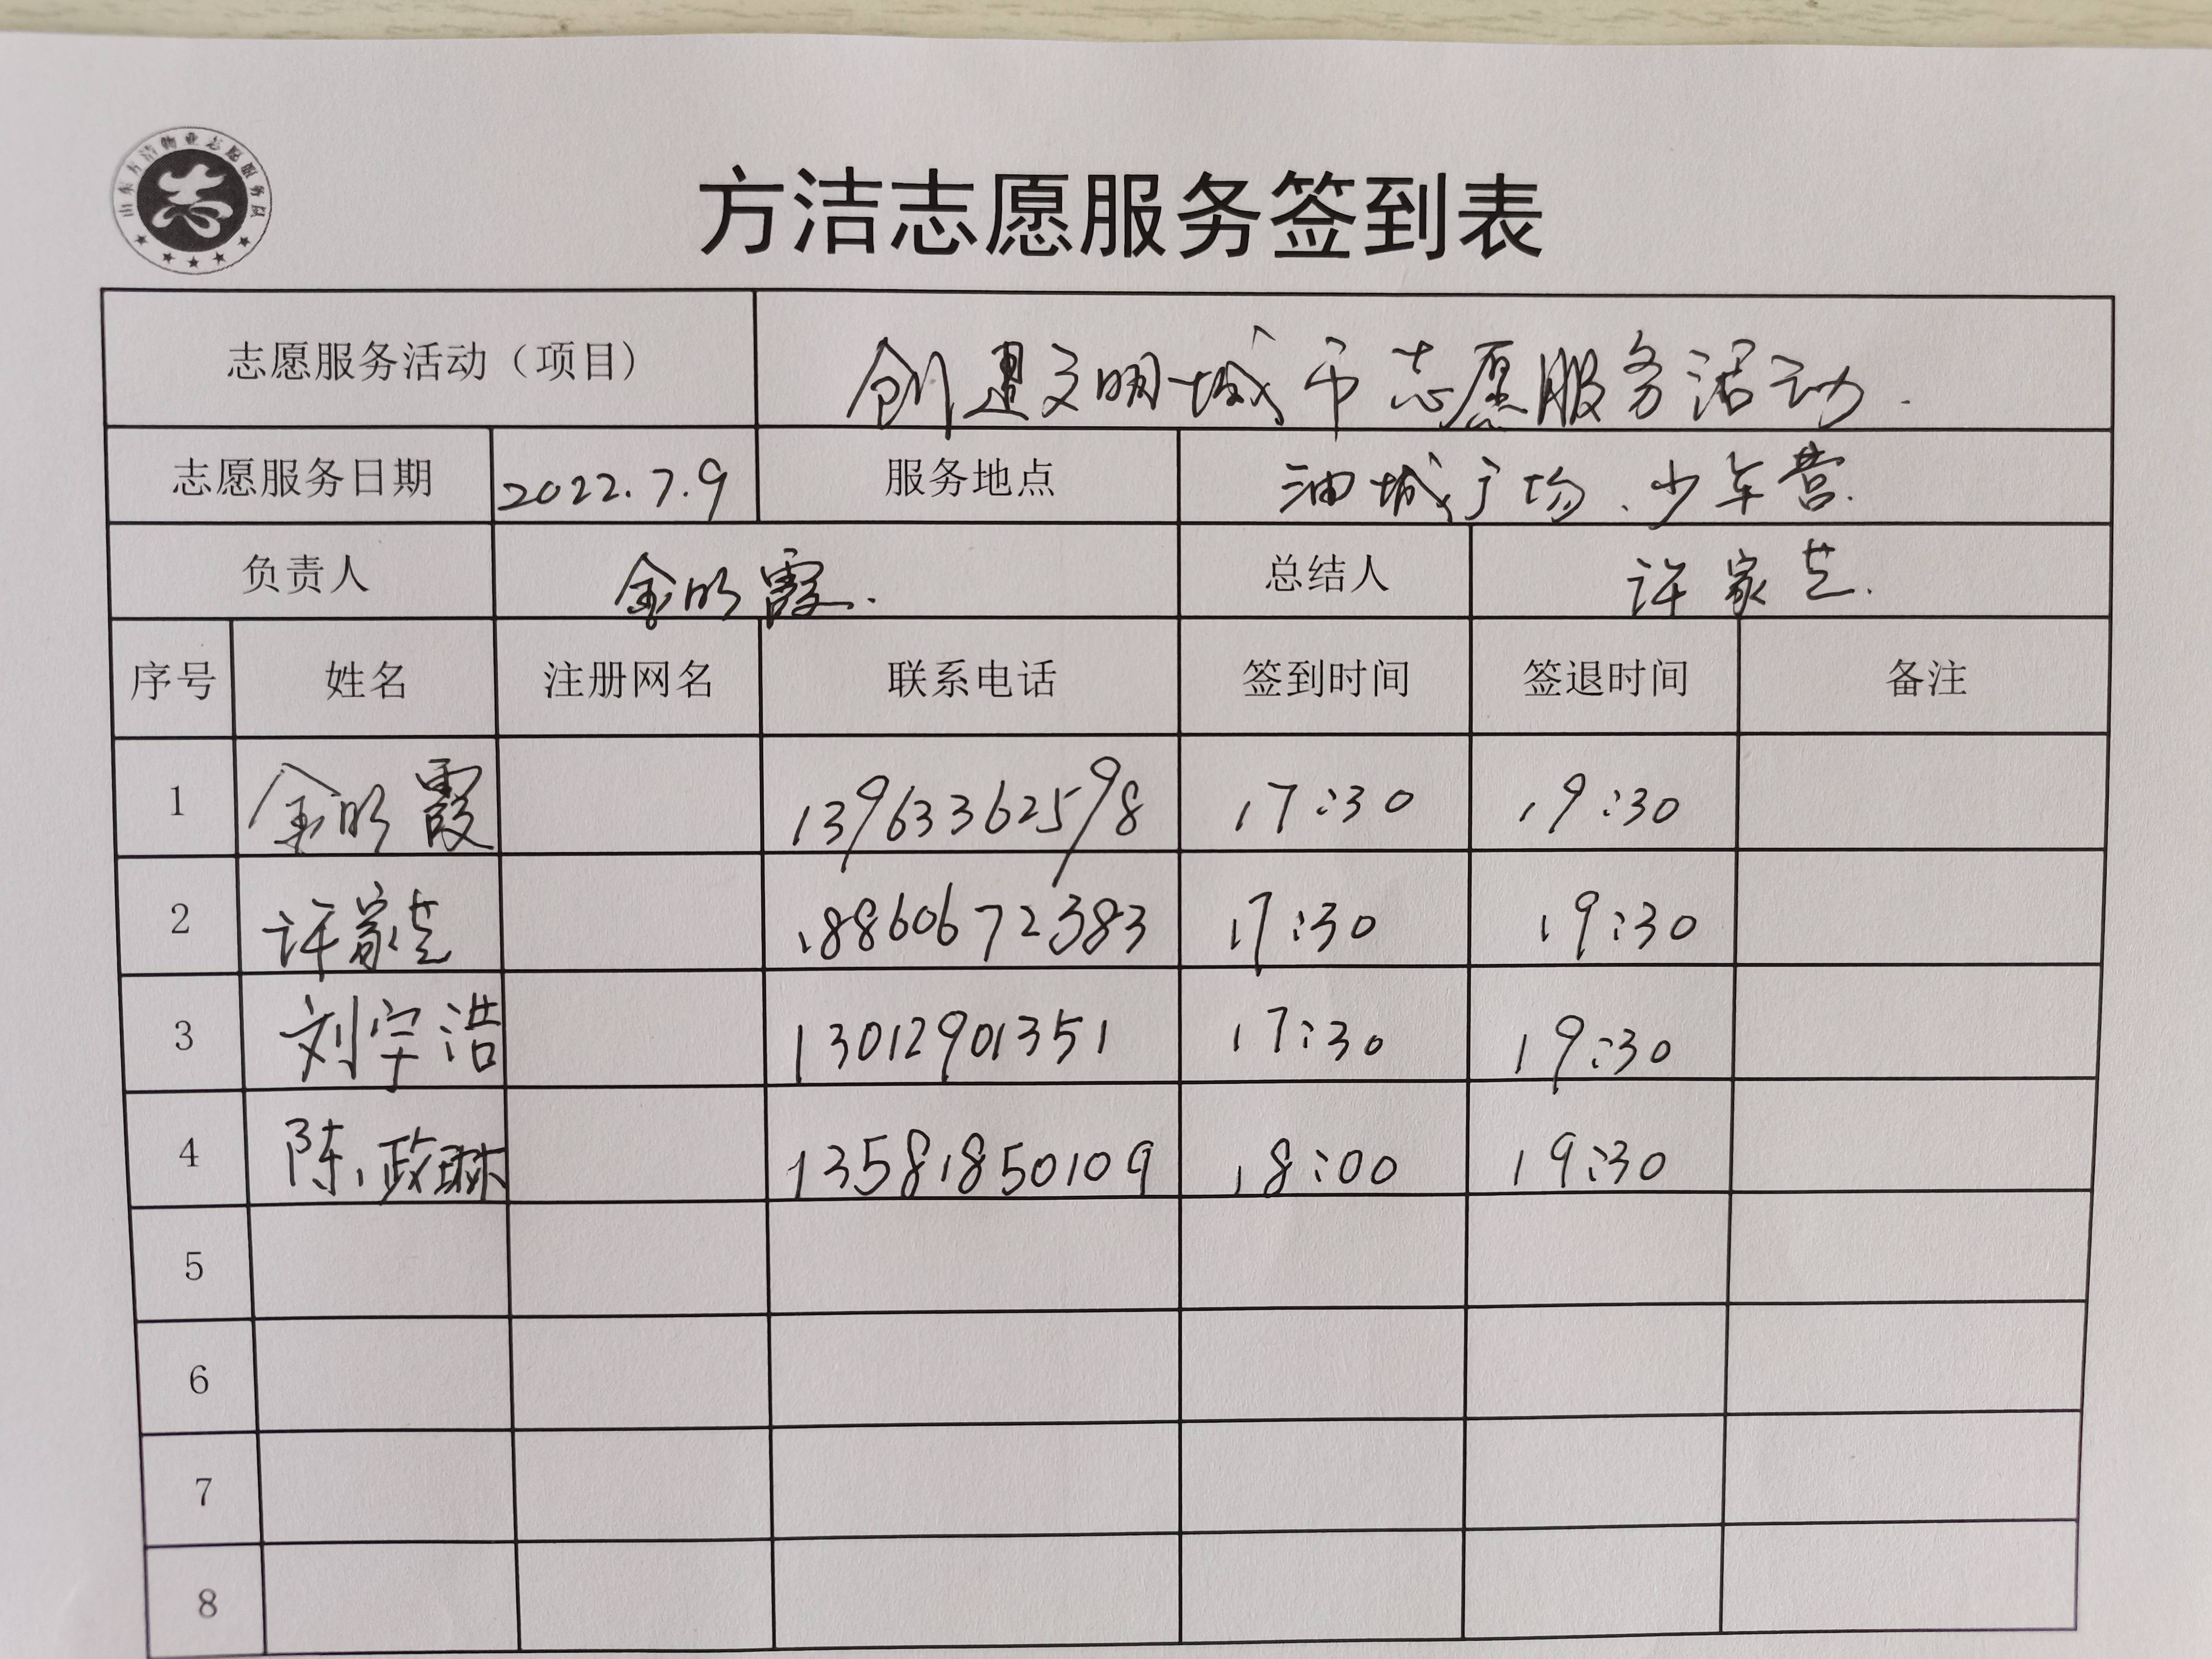 山东方洁物业志愿服务队
方洁志愿服务签到表
志愿服务活动（项目） 创建文明城市志愿服务活动.
志愿服务日期 2022.7.9 服务地点 油城广场、少年营.
负责人 金明霞. 总结人 许家芝.
序号 姓名 注册网名 联系电话 签到时间 签退时间 备注
1 金明霞 13963362598 17:30 19:30
2 许家芝 18860672383 17:30 19:30
3 刘宇浩 13012901351 17:30 19:30
4 陈政琳 13581850109 18:00 19:30
5
6
7
8